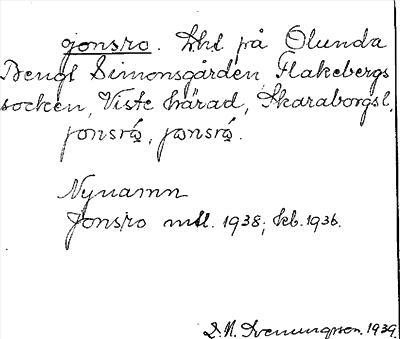 Jonsro. Lht på Ölunda
Bengt Simonsgården, Flakebergs
socken, Viste härad, Skaraborgsl.
jonsrώ̨, jωnsrώ̨.
Nynamn
Jonsro mtl. 1938; kb. 1936.
1939.